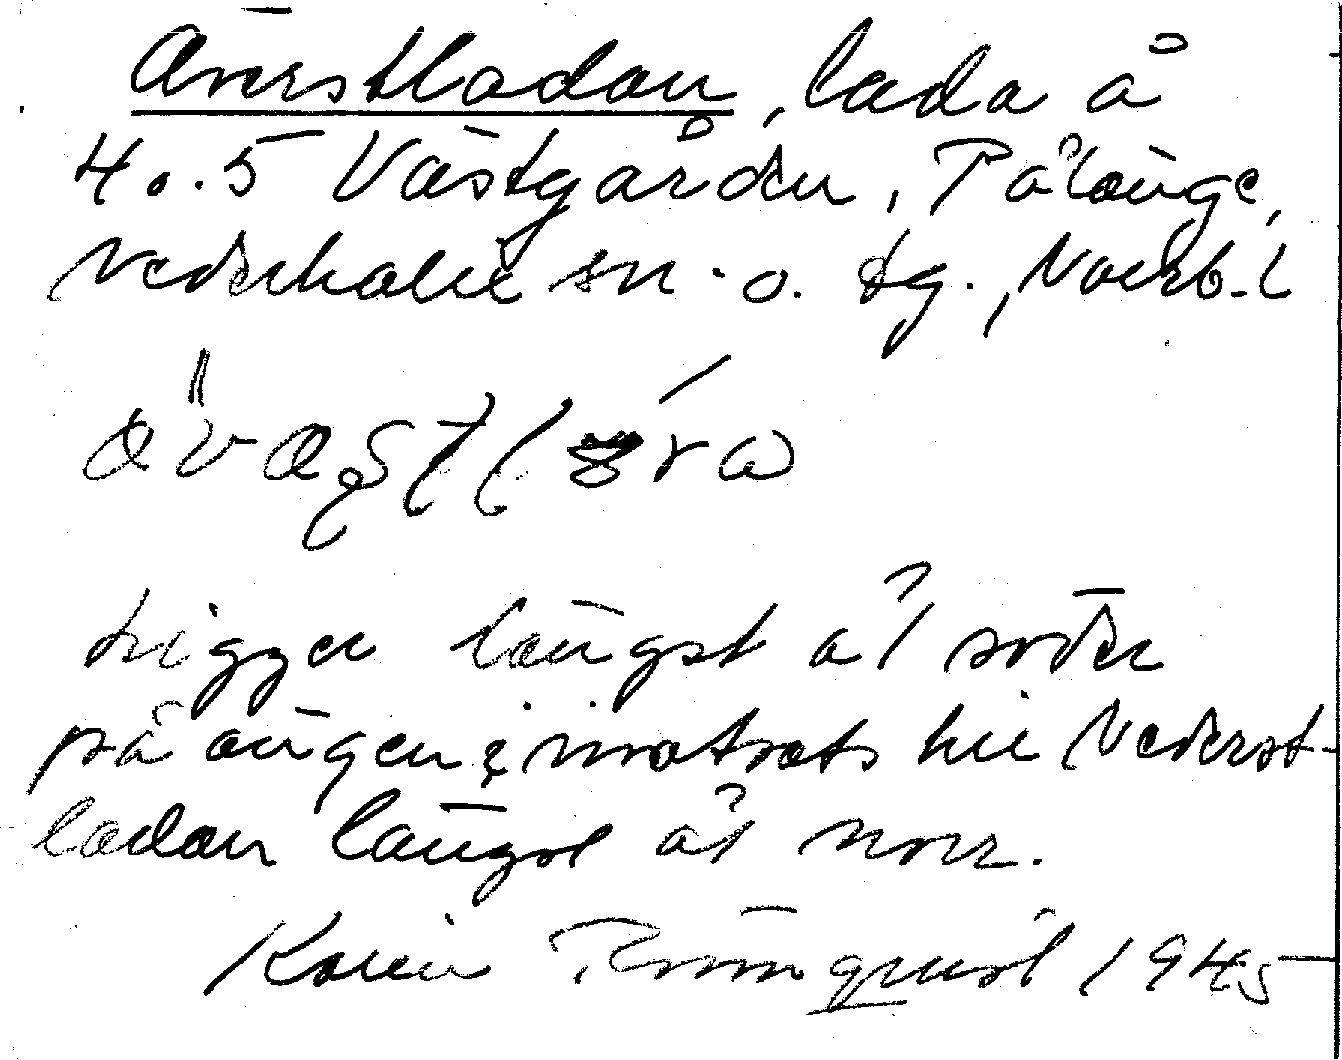 Överstladan, lada å
4 o. 5 Västgården, Pålänge,
Nederkalix sn. o. tg., Norrb. l
Ligger längst åt söder
på ängen i motsats till Nederst-
ladan längst åt norr.
Karin Rönnquist 1945